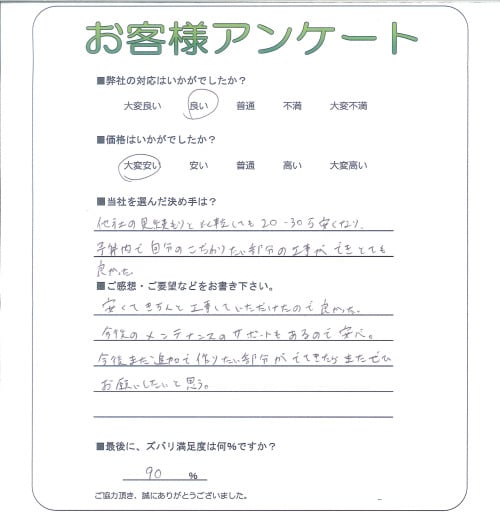 お客様アンケート
■弊社の対応はいかがでしたか？
大変良い 良い 普通 不満 大変不満
■価格はいかがでしたか？
大変安い 安い 普通 高い 大変高い
■当社を選んだ決め手は？
他社の見積もりと比較しても20-30万安くなり、
予算内で自分のこだわりたい部分の工事ができとても
良かった。
■ご感想・ご要望などをお書き下さい。
安くてきちんと工事していただけたので良かった。
今後のメンテナンスのサポートもあるので安心。
今後また追加で作りたい部分がでてきたらまたぜひ
お願いしたいと思う。
■最後に、ズバリ満足度は何%ですか？
90 %
ご協力頂き、誠にありがとうございました。